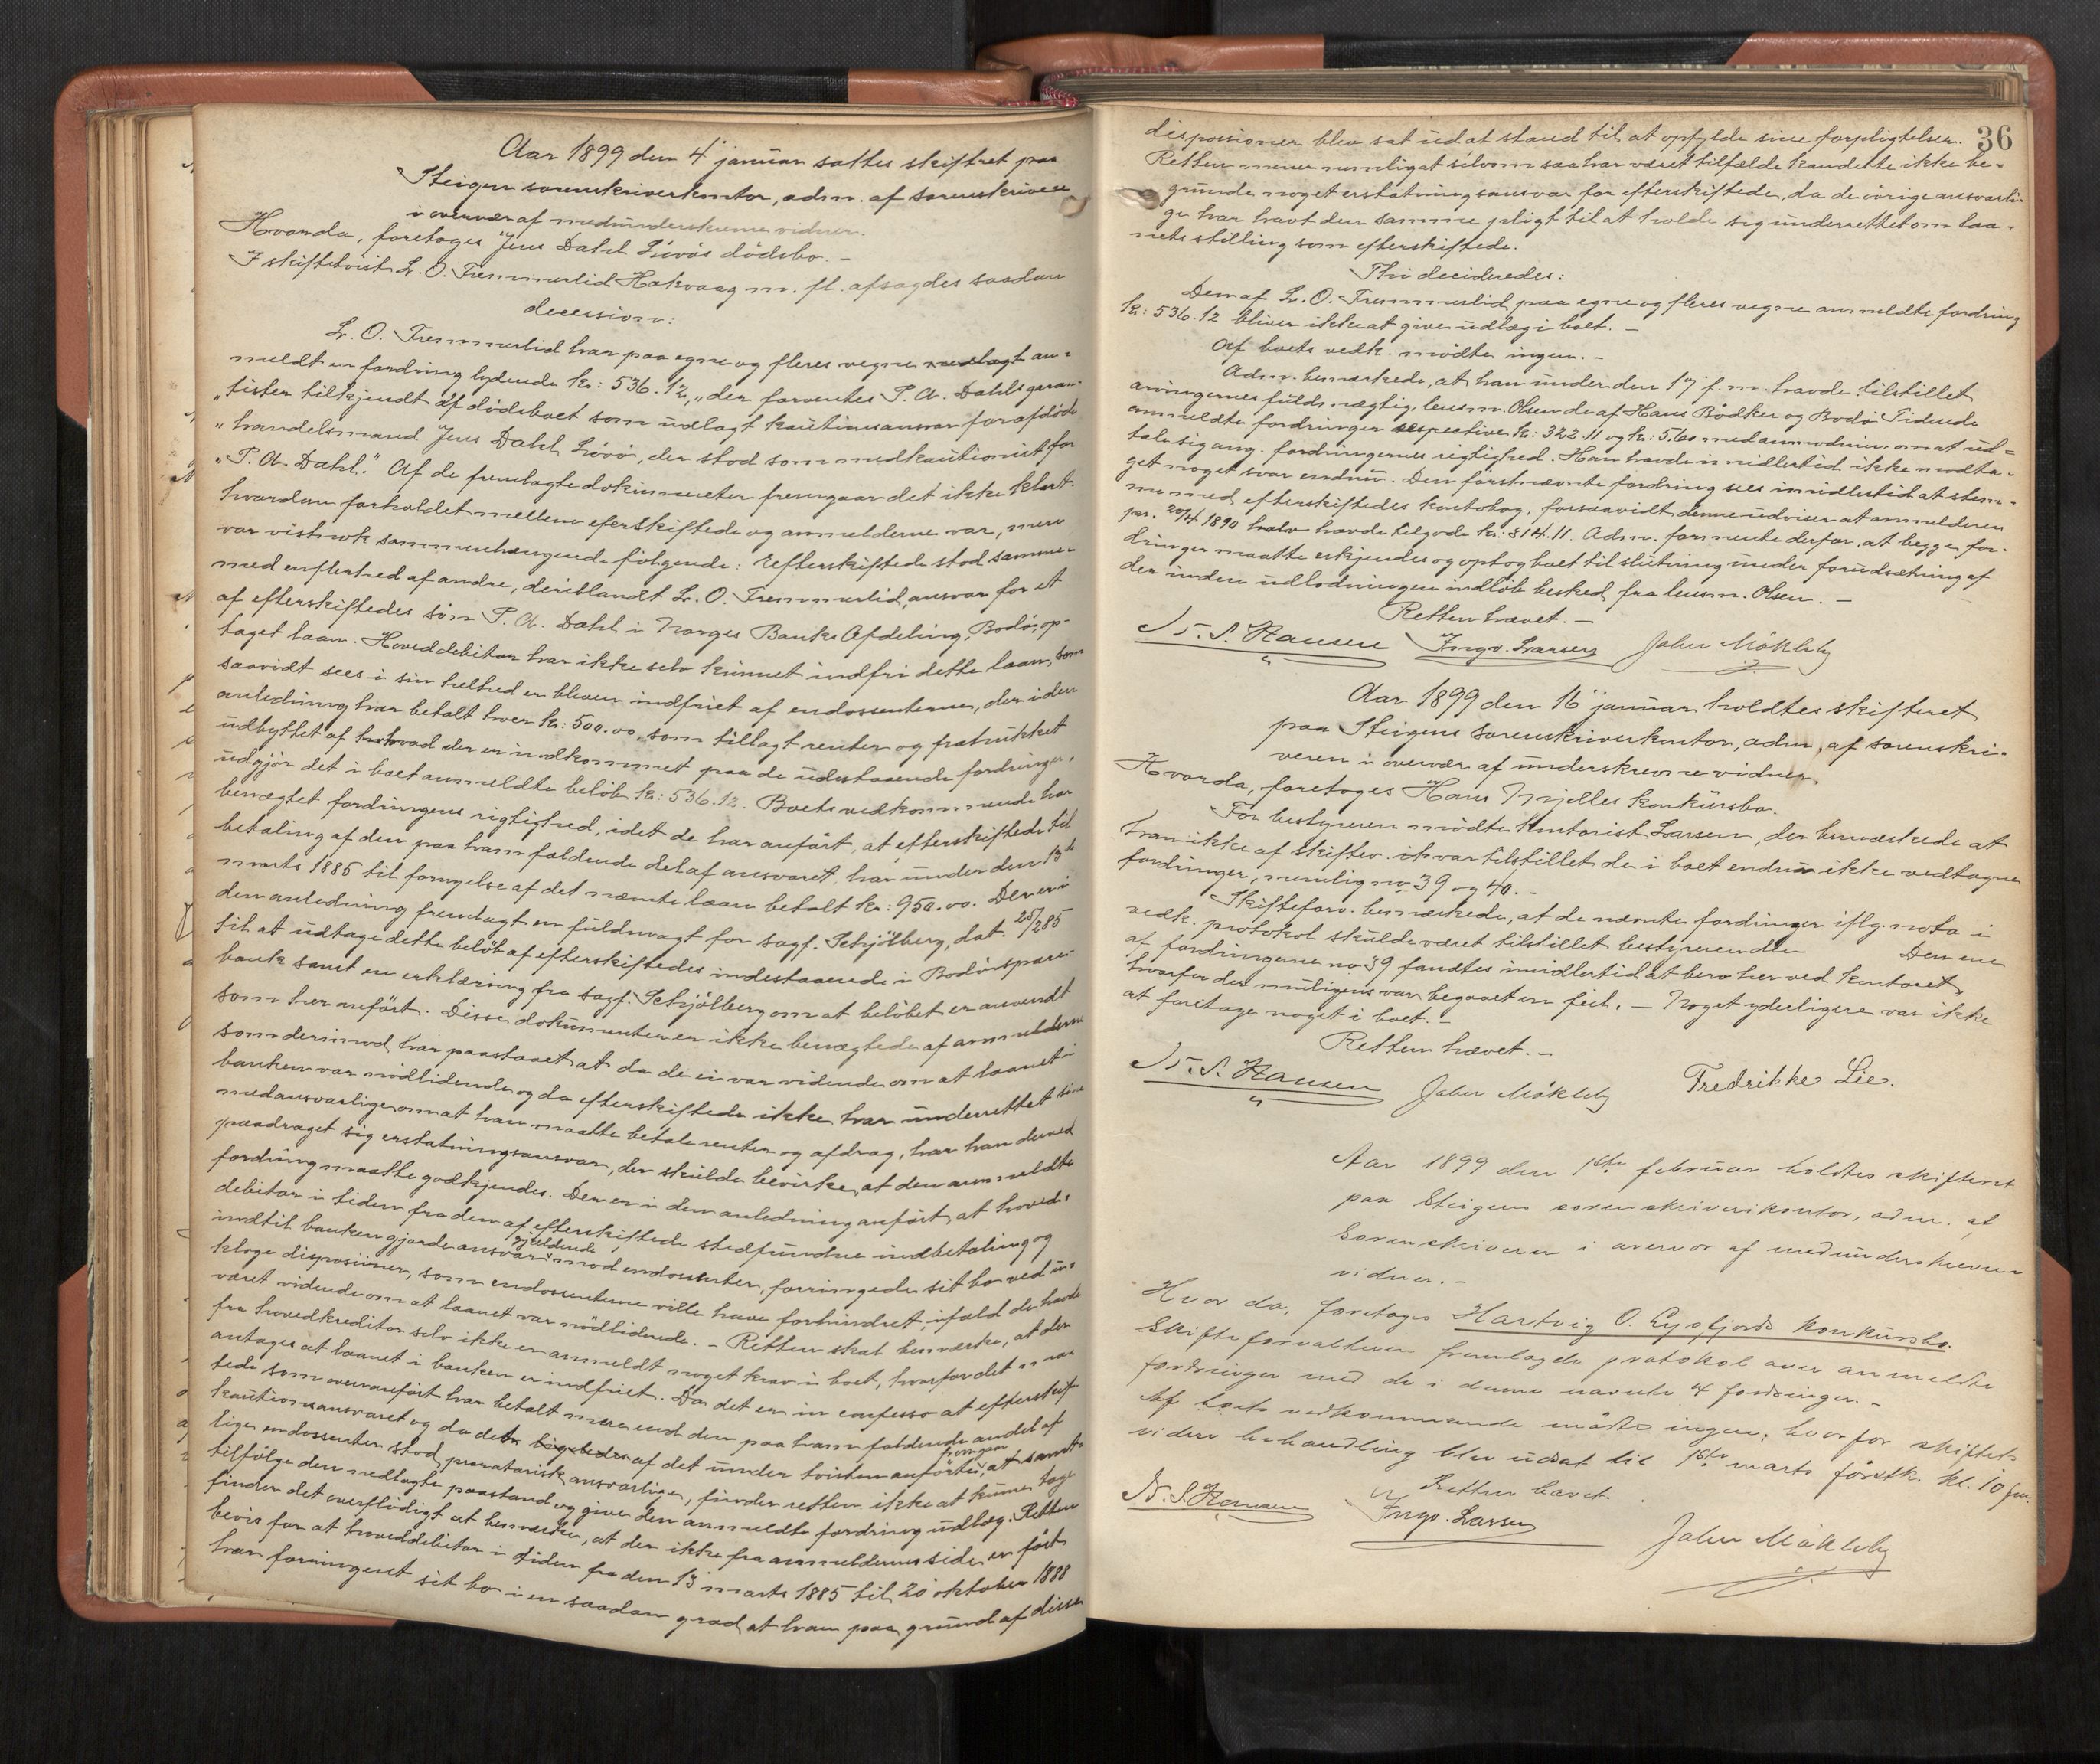 Aar 1899 den 4 januar sattes skiftret paa
Steigen sorenskriverkontor, adm. af sorenskriveren
i overvær af medunderskrevne vidner.
Hvorda, foretoges Jens Dahl Lövös dödsbo. -
I skiftetvist L. O. Tremmerlid Hakvaag m. fl. afsagdes saadan
decession:
L. O. Tremmerlid har paa egne og fleres vegne nedlagt an-
meldt en fordring lydende kr: 536.12, „der forventes P. A. Dahls garan-
„tister tilkjendt af dödsboet som udlagt kautionsansvar for afdöde
„handelsmand Jens Dahl Lövö, der stod som medkautionist for
„P. A. Dahl." Af de fremlagte dokumenter fremgaar det ikke klart
hvordan forholdet mellem efterskiftede og anmelderne var, men
var vistnok sammenhængende følgende: Efterskiftede stod sammen
med en flerhed af andre, deriblandt L. O. Tremmerlid, ansvar for et
af efterskiftedes sön P. A. Dahl i Norges Banks Afdeling, Bodö, op-
taget laan. Hoveddebitor har ikke selv kunnet indfri dette laan, som
saavidt sees i sin helhed er bleven indfriet af endossenterne, der i den
anledning har betalt hver kr: 500.00, som tillagt renter og fratrukket
udbyttet af hvad der er indkommet paa de udestaaende fordringer,
udgjör det i boet anmeldte belöb kr: 536.12. Boets vedkommende har
benægtet fordringens rigtighed, idet de har anfört, at efterskiftede til
betaling af den paa ham faldende del af ansvaret, har under den 13de
marts 1885 til fornyelse af det nævnte laan betalt kr: 950.00. Der er i
den anledning fremlagt en fuldmagt for sagf. Schjölberg, dat. 25/2 85
til at udtage dette belöb af efterskiftedes indestaaende i Bodö spare-
bank samt en erklæring fra sagf. Schjölberg om at belöbet er anvendt
som her anfört. Disse dokumenter er ikke benægtede af anmelderne
som derimod har paastaaet at da de ei var vidende om at laanet i
banken var nödlidende og da efterskiftede ikke har underrettet sine
medansvarlige om at han maatte betale renter og afdrag, har han derved
paadraget sig erstatningsansvar, der skulde bevirke, at den anmeldte
fordring maatte godkjendes. Der er i den anledning anfört, at hoved-
debitor i tiden fra den af efterskiftede stedfundne indbetaling og
indtil banken gjorde ansvar gjældende mod endossenter, forringede sit bo ved u-
kloge disposioner, som endossenterne ville have forhindret, ifald de havde
været vidende om at laanet var nödlidende. - Retten skal bemærke, at der
fra hovedkreditor selv ikke er anmeldt noget krav i boet, hvorfor det maa
antages at laanet i banken er indfriet. Da det er in confesso at efterskif-
tede som ovenanfört har betalt mere end den paa ham faldende andel af
kautionsansvaret og da det ligeledes af det under tvisten anförte fremgaar, at samt-
lige endossenter stod proratarisk ansvarlige, finder retten ikke at kunne tage
tilfölge den nedlagte paastand og give den anmeldte fordring udlæg. Retten
finder det overflödigt at bemærke, at der ikke fra anmeldernes side er fört
bevis for at hoveddebitor i tiden fra den 13 marts 1885 til 20 oktober 1888
har forringeret sit bo i en saadan grad, at han paa grund af disse
36
disposioner blev sat ud at stand til at opfylde sine forpligtelser.
Retten mener nemligat selvom saa har været tilfælde kan dette ikke be-
grunde noget erstatningsansvar for efterskiftede, da de övrige ansvarli-
ge har havt den samme pligt til at holde sig underrettet om laa-
nets stilling som efterskiftede.
Thi decideredes:
Den af L. O. Tremmerlid paa egne og fleres vegne anmeldte fordring
kr: 536.12 bliver ikke at give udlæg i boet. -
Af boets vedk. mödte ingen. -
Adm. bemærkede, at han under den 17 f. m. havde tilstillet
arvingernes fuldmægtig, lensm. Olsen de af Hans Bödker og Bodö Tidende
anmeldte fordringer respective kr: 322.11 og kr: 5.60 med anmodning om at ud-
tale sig ang. fordringernes rigtighed. Han havde imidlertid ikke modta-
get noget svar endnu. Den förstnævnte fordring sees imidlertid at stem-
me med efterskiftedes kontobog, forsaavidt denne udviser at anmelderen
pr. 20/4 1890 havde tilgode kr: 814.11. Adm. formente derfor, at begge for-
dringer maatte erkjendes og optog boet til slutning under forudsætning af
der inden udlodningen indlöb besked fra lensm. Olsen. -
Retten hævet. -
N. S. Hansen Ingv. Larsen Johen Mökleby
Aar 1899 den 16 januar holdtes skifteret
paa Steigens sorenskriverkontor, adm. af sorenskri-
veren i overvær af underskrevne vidner.
Hvorda, foretoges Hans Mjelles konkursbo.
For bestyreren mödte kontorist Larsen, der bemærkede at
han ikke af skifterv. itvar tilstillet de i boet endnu ikke vedtagne
fordringer, nemlig no 39 og 40. -
Skifteforv. bemærkede, at de nævnte fordringer iflg. nota i
vedk. protokol skulde været tilstillet bestyreren den Den ene
af fordringerne no 39 fandtes imidlertid at bero her ved kontoret,
hvorfor der muligens var begaaet en feil. - Noget yderligere var ikke
at foretage noget i boet. -
Retten hævet. -
N. S. Hansen Johen Mökleby Fredrikke Lie.
Aar 1899 den 1ste februar holdtes skifteret
paa Steigens sorenskriverikontor, adm. af
Sorenskriveren i overvær af medunderskrevne
vidner. -
Hvor da, foretoges Hartvig O. Eysfjords konkursbo.
Skifteforvalteren fremlagde protokol over anmeldte
fordringer med de i denne nævnte 4 fordringer. -
Af boets vedkommende mödte ingen, hvorfor skiftets
videre behandling blev udsat til 1ste marts förstk. kl. 10 fm.
Retten hævet.
N. S. Hansen Ingv. Larsen
Johen Mökleby